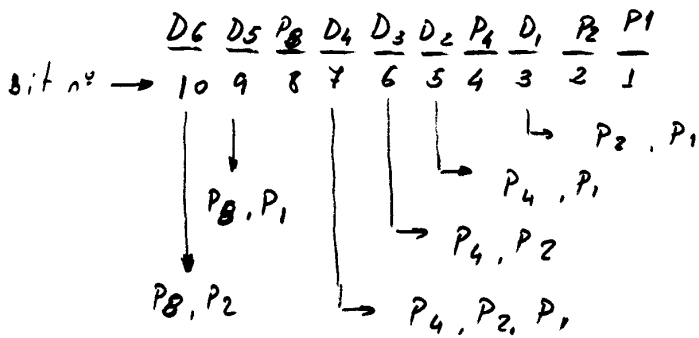 D6 D5 P8 D4 D3 D2 P4 D1 P2 P1
Bit nº → 10 9 8 7 6 5 4 3 2 1
P2, P1
P4, P1
P8, P1
P4, P2
P8, P2
P4, P2, P1